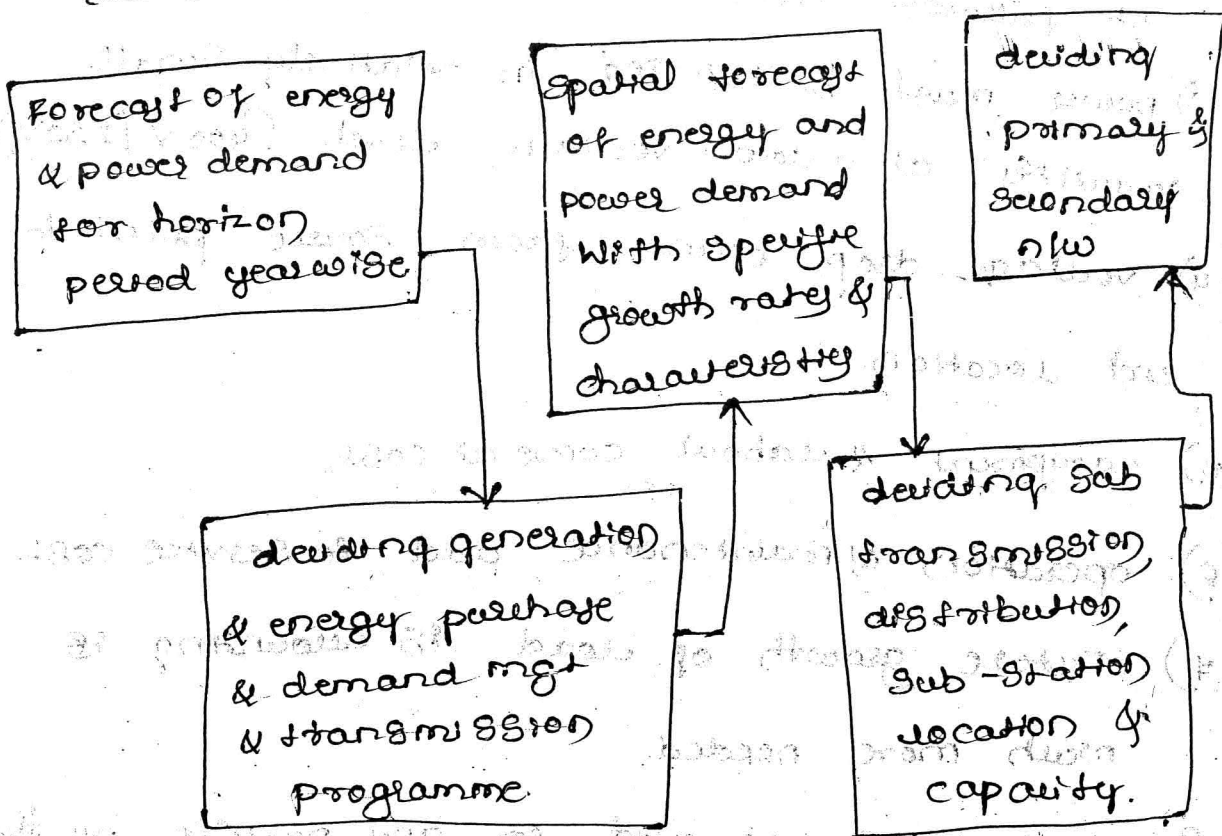 Forecast of energy
& power demand
for horizon
period yearwise
deciding generation
& energy purchase
& demand mgt
& transmission
programme
Spatial forecast
of energy and
power demand
With specific
growth rates &
characteristics
deciding Sub
transmission,
distribution,
Sub-Station,
location &
capacity.
deciding
primary &
secondary
n/w